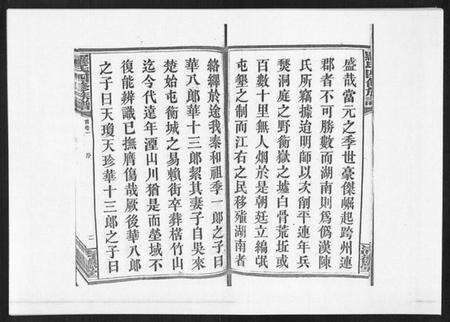 盛哉當元之季世豪傑崛起跨州連
郡者不可勝數而湖南則為偽漢陳
氏所竊據迨明師以次削平連年兵
燹洞庭之野衡嶽之墟白骨荒坵或
百數十里無人烟於是朝廷立編氓
屯墾之制而江右之民移殖湖南者
絡繹於途我泰和祖季一郎之子曰
華八郎華十三郎絜其妻子自吳來
楚始屯衡城之易賴街卒葬楮竹山
迄今代遠年湮山川猶是而塋域不
復能辨識已撫膺傷哉厥後華八郎
之子曰天瓊天珍華十三郎之子曰